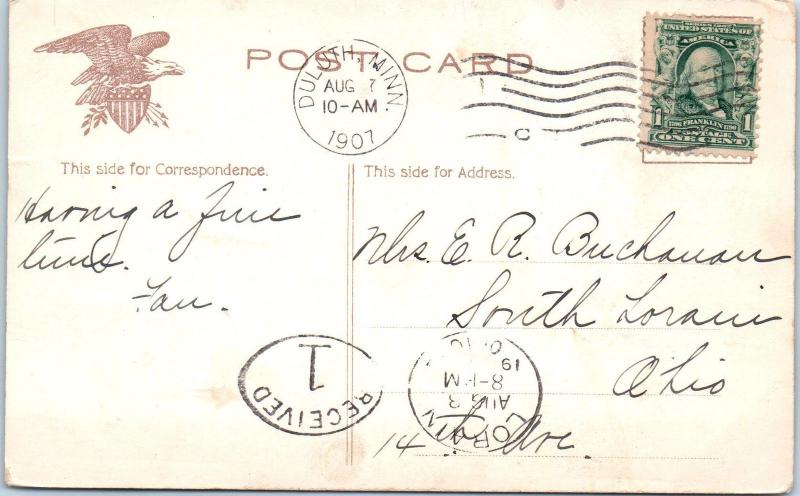 POST CARD
DULUTH, MINN.
AUG 7
10-AM
1907
C
SERIES 1902
UNITED STATES OF
AMERICA
1 1
1706 FRANKLIN 1790
POSTAGE
ONE CENT
This side for Correspondence.
This side for Address.
Having a fine
time.
Fan.
Mrs. E. R. Buchanan
South Lorain
Ohio
14 th Ave.
RECEIVED
1
LORAIN
AUG 8
8-PM
19